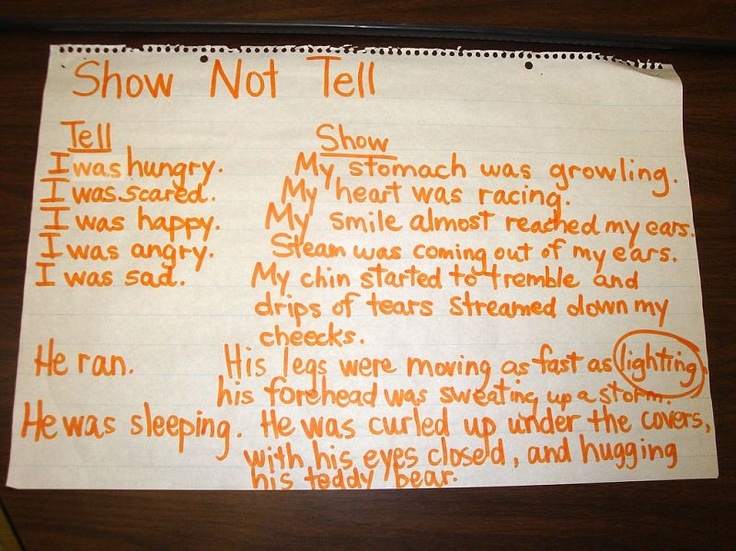 Show Not Tell
Tell Show
I was hungry. My stomach was growling.
I was scared. My heart was racing.
I was happy. My smile almost reached my ears.
I was angry. Steam was coming out of my ears.
I was sad. My chin started to tremble and
drips of tears streamed down my
cheecks.
He ran. His legs were moving as fast as lighting,
his forehead was sweating up a storm.
He was sleeping. He was curled up under the covers,
with his eyes closed, and hugging
his teddy bear.